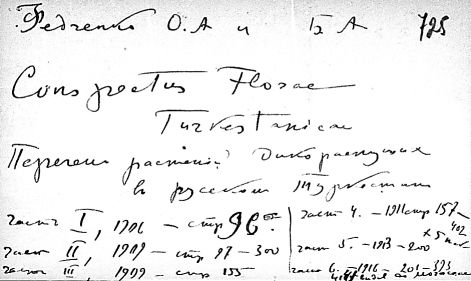 Федченко О.А и Б А 725
Conspectus Florae
Turkestanicae
Перечень растений дикорастущих
в русском Туркестане
часть I, 1906 – стр 96.
часть II, 1909 – стр 97–300
часть III, 1909 – стр 155
част 4. – 1911 стр 157–402
част 5. – 1913 – 200
част 6. – 1916 – 201–393